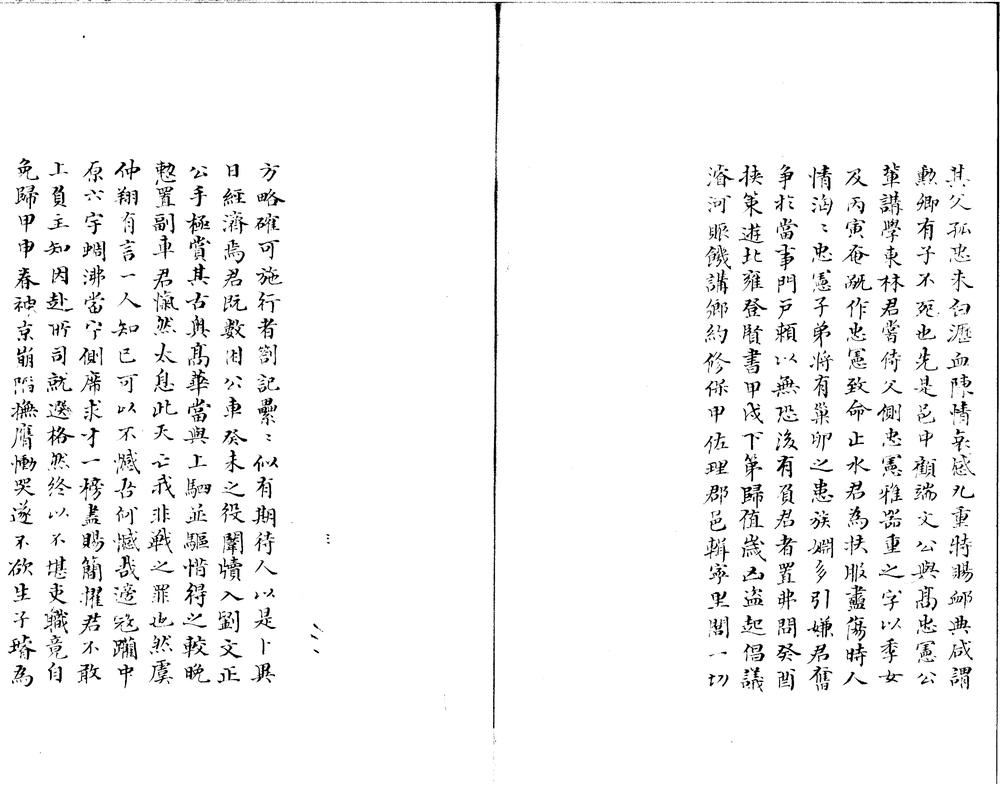 其父孤忠未白瀝血陳情哀感九重特賜䘏典咸謂
勲卿有子不死也先是邑中顧端文公與髙忠憲公
輩講學東林君嘗侍父側忠憲雅器重之字以季女
及丙寅奄旤作忠憲致命止水君為扶服盡傷時人
情洶〻忠憲子弟將有巢卵之患族姻多引嫌君奮
争扵當事門戸頼以無恐後有負君者置弗問癸酉
挟策遊北雍登賢書甲戌下第歸值歲凶盗起倡議
濬河賑饑講鄉約修保甲佐理郡邑輯寧里閈一切
方略確可施行者劄記纍〻似有期待人以是卜異
日經濟焉君既數困公車癸未之役闈牘入劉文正
公手極賞其古奥髙華當與上駟並驅惜得之較晚
憗置副車君慨然太息此天亡我非戰之罪也然虞
仲翔有言一人知己可以不憾吾何憾哉適宼躪中
原六字蜩沸當宁側席求才一榜盡賜簡擢君不敢
上負主知因赴所司就選格然終以不堪吏職竟自
免歸甲申春神京崩䧟撫膺慟哭遂不欲生子㻞為